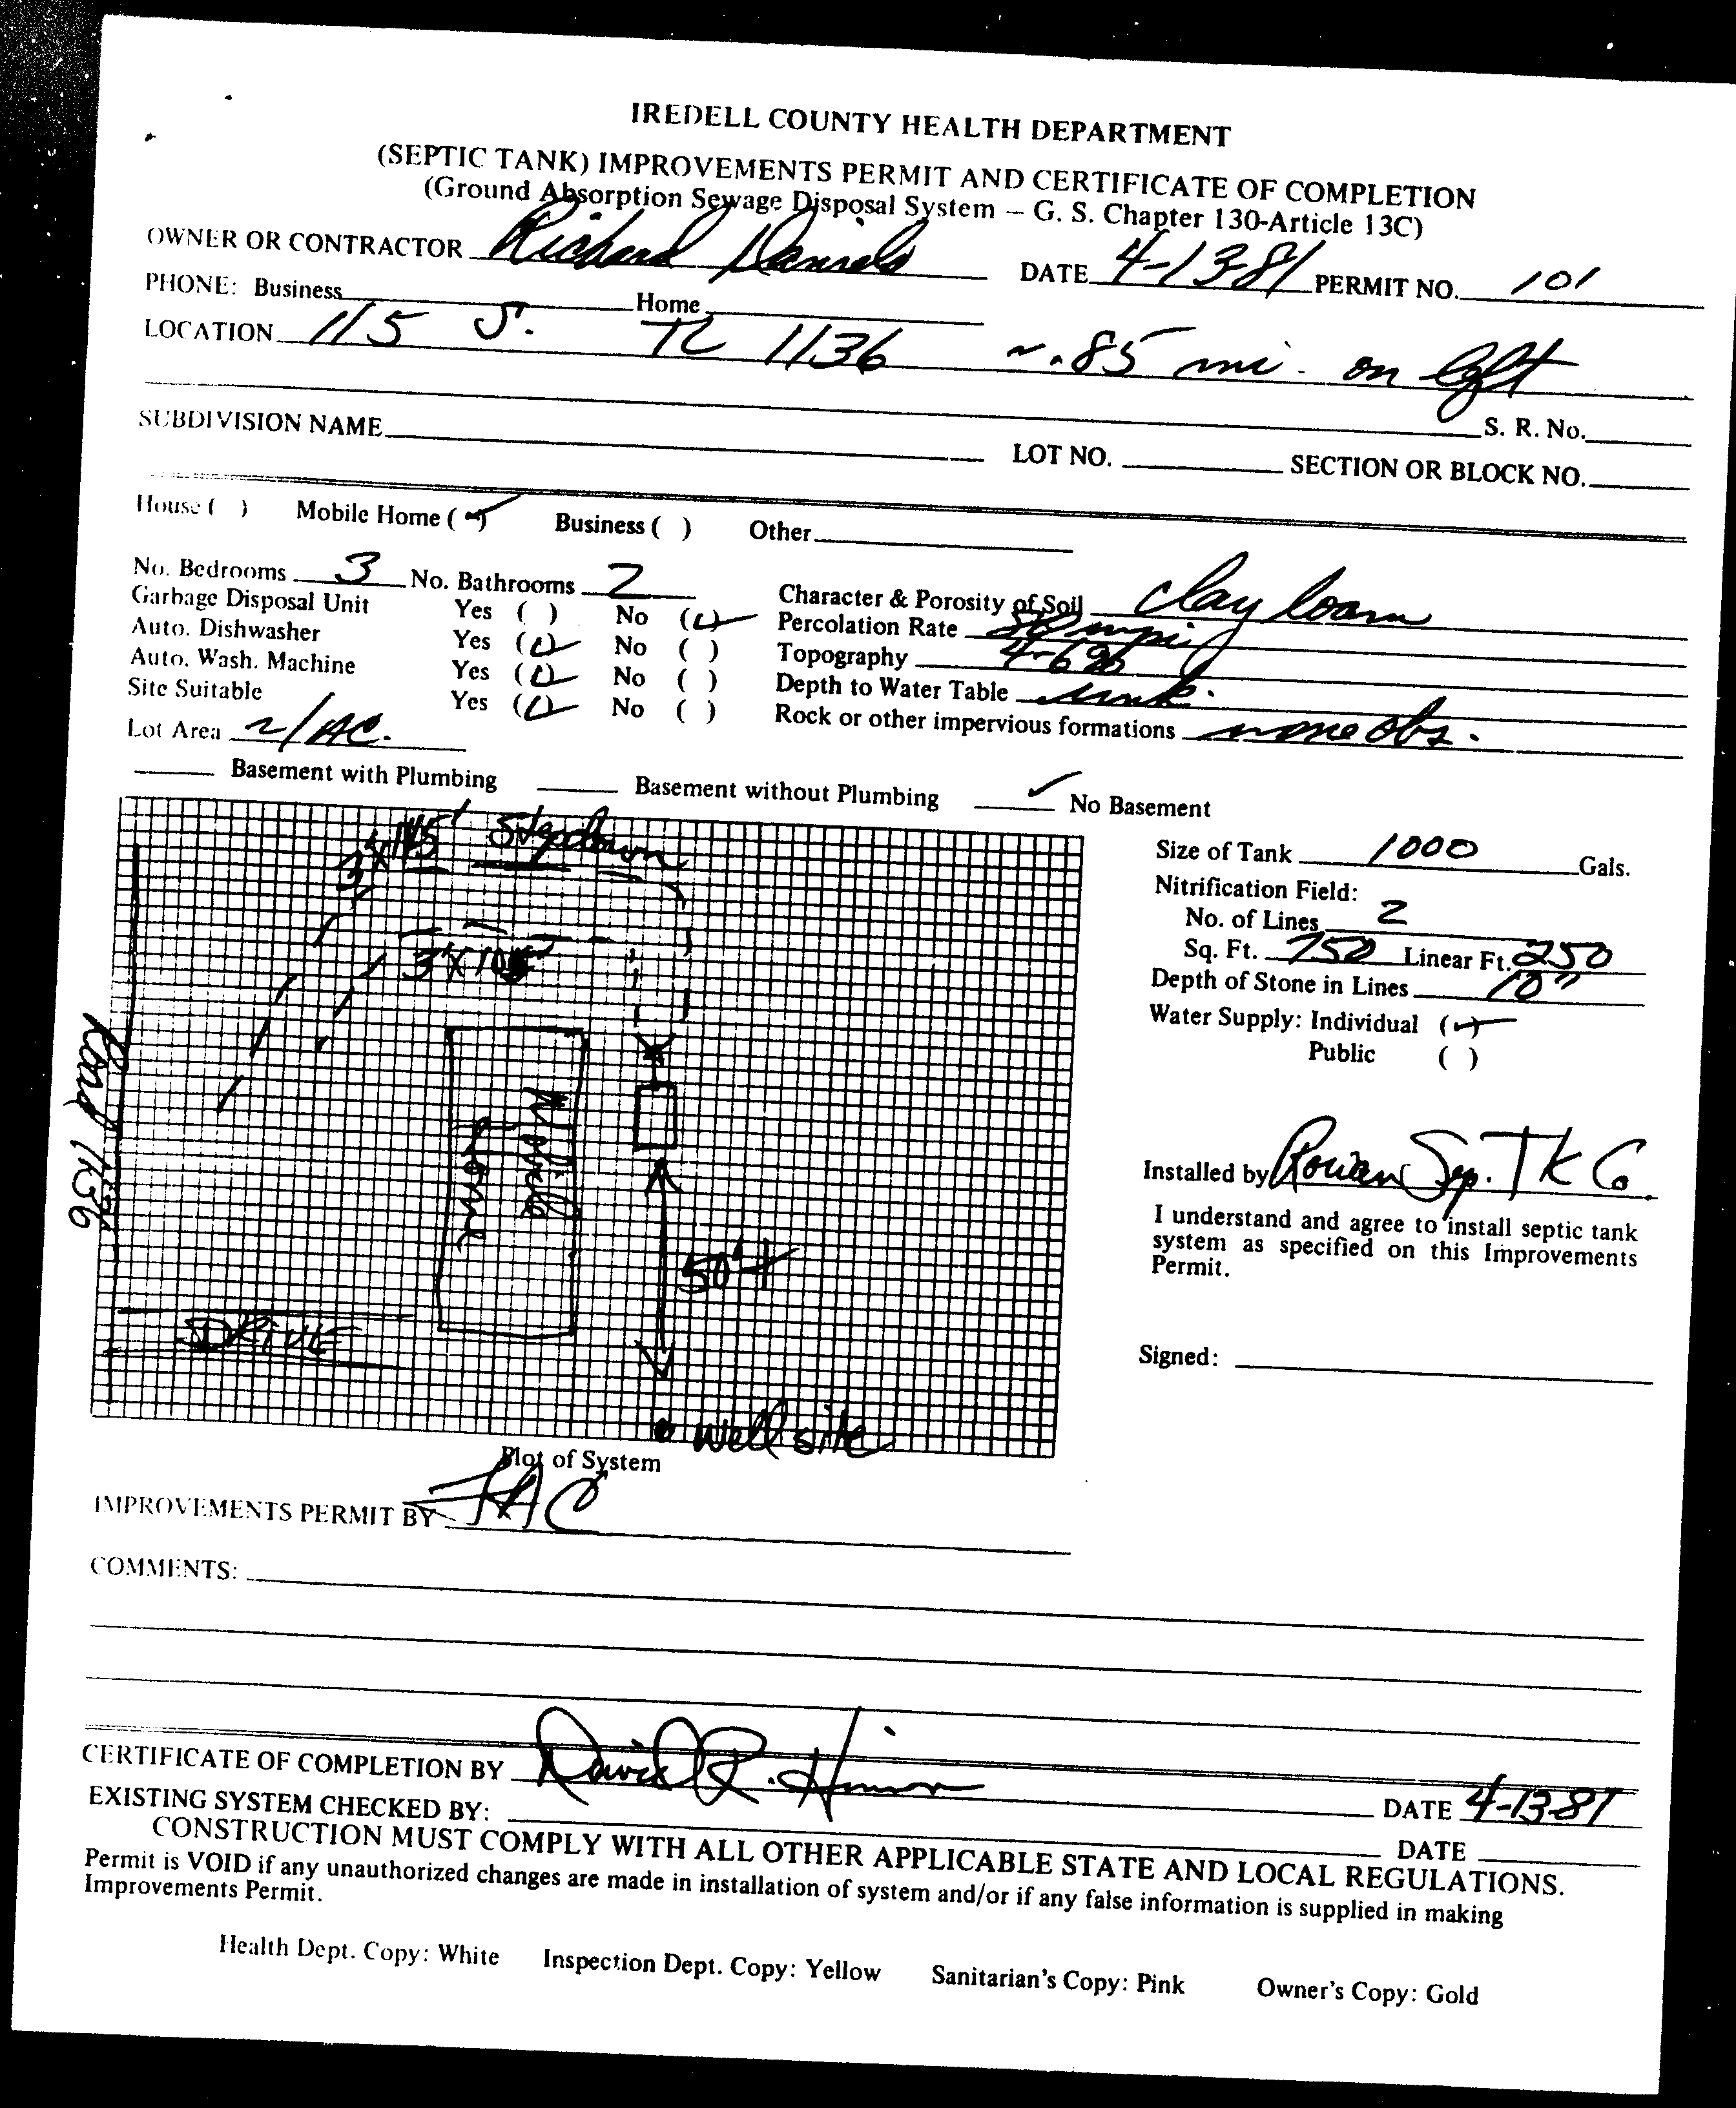 IREDELL COUNTY HEALTH DEPARTMENT
(SEPTIC TANK) IMPROVEMENTS PERMIT AND CERTIFICATE OF COMPLETION
(Ground Absorption Sewage Disposal System – G. S. Chapter 130-Article 13C)
OWNER OR CONTRACTOR Richard Daniels DATE 4-13-81 PERMIT NO. 101
PHONE: Business Home
LOCATION 115 S. TL 1136 ~.85 mi. on left
S. R. No.
SUBDIVISION NAME LOT NO. SECTION OR BLOCK NO.
House ( ) Mobile Home (✓) Business ( ) Other
No. Bedrooms 3 No. Bathrooms 2 Character & Porosity of Soil clay loam
Garbage Disposal Unit Yes ( ) No (✓) Percolation Rate mpi
Auto. Dishwasher Yes (✓) No ( ) Topography 4-6%
Auto. Wash. Machine Yes (✓) No ( ) Depth to Water Table unk.
Site Suitable Yes (✓) No ( ) Rock or other impervious formations none obs.
Lot Area ~1 AC.
Basement with Plumbing Basement without Plumbing ✓ No Basement
3'x145' Stepdown
3'x105'
Road 1136
Mobile
Home
50'+
DRIVE
well site
Plot of System
Size of Tank 1000 Gals.
Nitrification Field:
No. of Lines 2
Sq. Ft. 750 Linear Ft. 250
Depth of Stone in Lines 10"
Water Supply: Individual (✓)
Public ( )
Installed by Rowan Sep. TK Co.
I understand and agree to install septic tank
system as specified on this Improvements
Permit.
Signed:
IMPROVEMENTS PERMIT BY
COMMENTS:
CERTIFICATE OF COMPLETION BY David R. DATE 4-13-81
EXISTING SYSTEM CHECKED BY: DATE
CONSTRUCTION MUST COMPLY WITH ALL OTHER APPLICABLE STATE AND LOCAL REGULATIONS.
Permit is VOID if any unauthorized changes are made in installation of system and/or if any false information is supplied in making
Improvements Permit.
Health Dept. Copy: White Inspection Dept. Copy: Yellow Sanitarian's Copy: Pink Owner's Copy: Gold